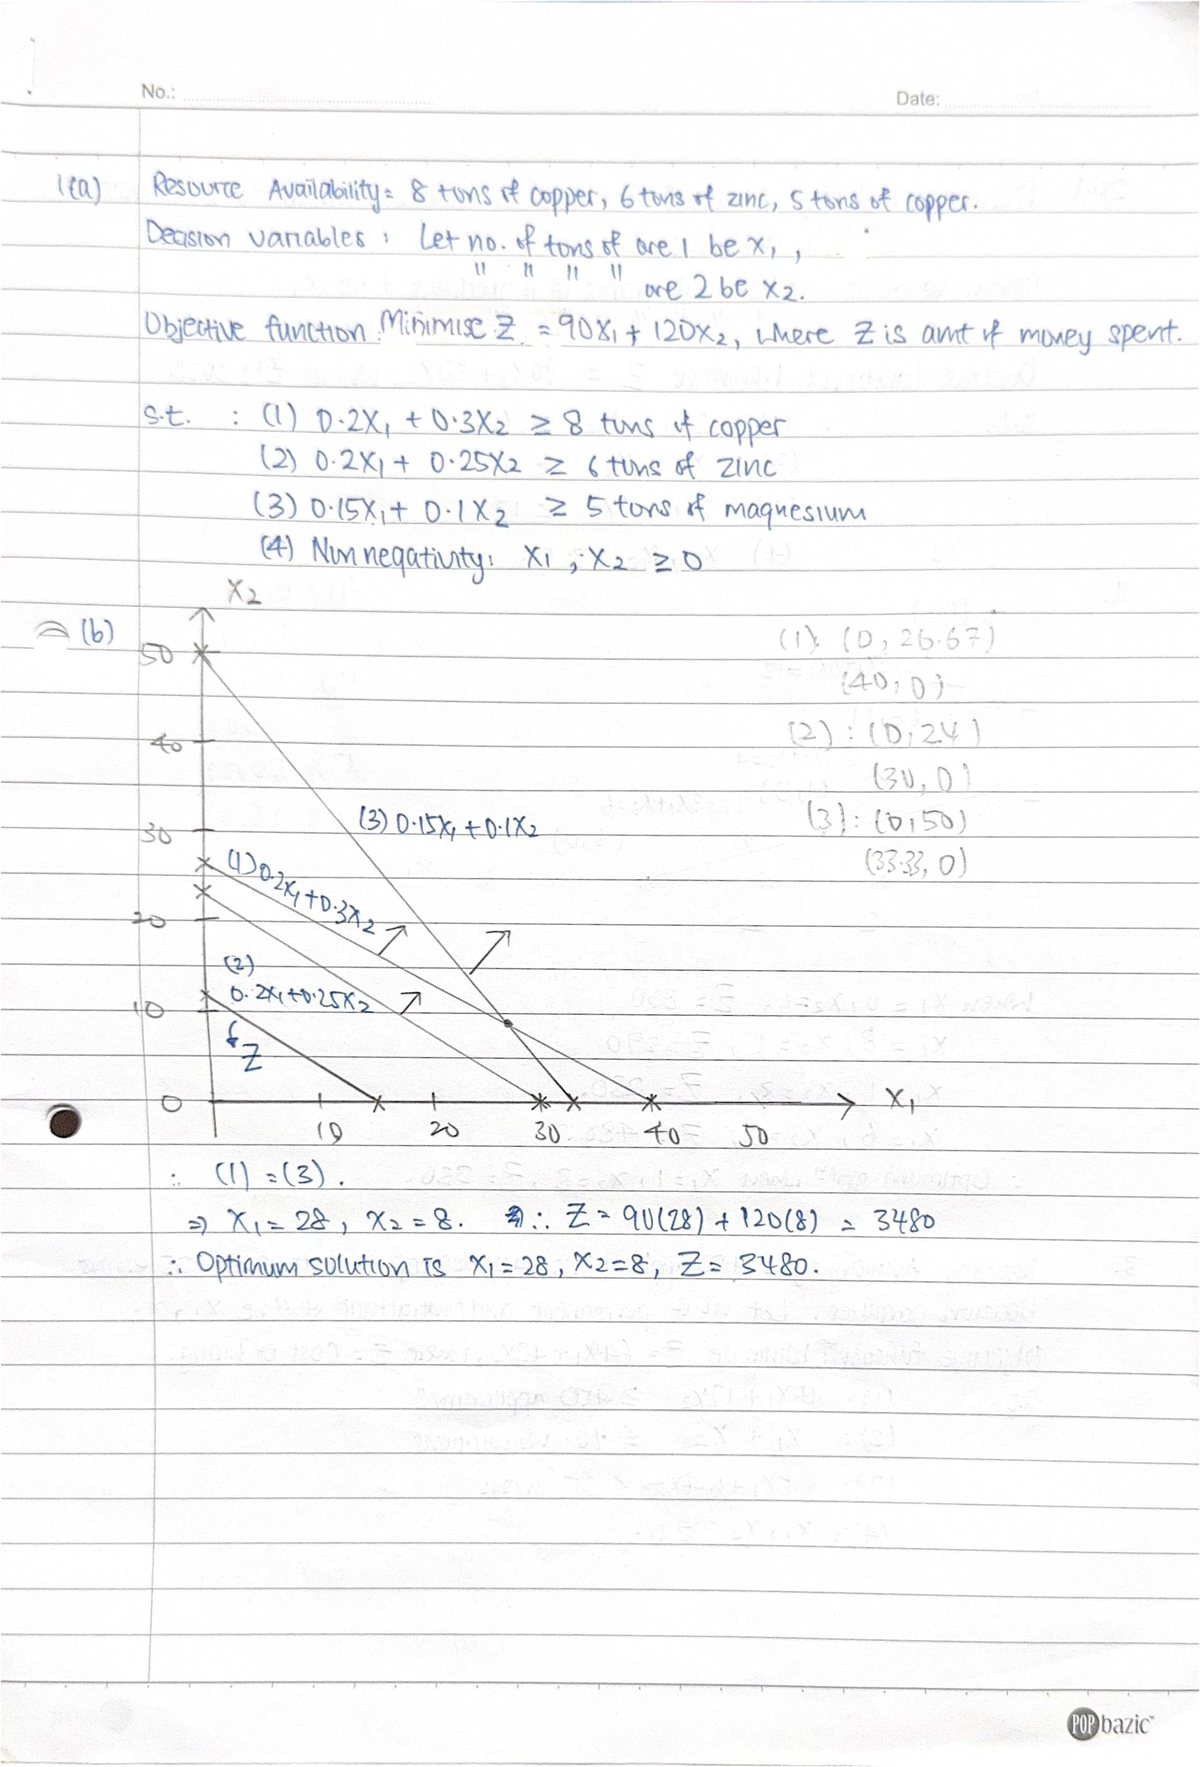 No.:
Date:
1(a) Resource Availability: 8 tons of copper, 6 tons of zinc, 5 tons of copper.
Decision variables : Let no. of tons of ore 1 be x₁ ,
" " " " ore 2 be x₂.
Objective function: Minimise Z = 90x₁ + 120x₂, where Z is amt of money spent.
s.t. : (1) 0.2x₁ + 0.3x₂ ≥ 8 tons of copper
(2) 0.2x₁ + 0.25x₂ ≥ 6 tons of zinc
(3) 0.15x₁ + 0.1x₂ ≥ 5 tons of magnesium
(4) Non negativity: x₁ , x₂ ≥ 0
x₂
(b)
50
40
30
20
10
0
(1): (0, 26.67)
(40, 0)
(2) : (0, 24)
(30, 0)
(3) : (0, 50)
(33.33, 0)
(3) 0.15x₁ + 0.1x₂
(1) 0.2x₁ + 0.3x₂
(2)
0.2x₁ + 0.25x₂
Z
x₁
10 20 30 40 50
∴ (1) = (3).
⇒ x₁ = 28, x₂ = 8. ∴ Z = 90(28) + 120(8) = 3480
∴ Optimum solution is x₁ = 28, x₂ = 8, Z = 3480.
POP bazic™